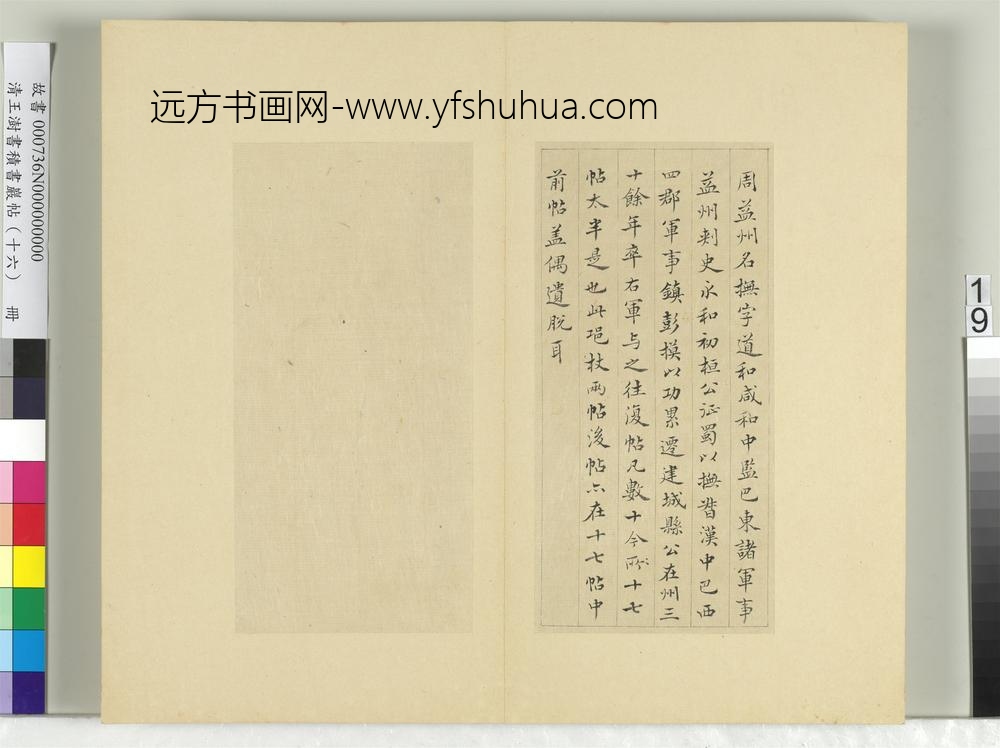 远方书画网-www.yfshuhua.com
故書 000736N000000000
清王澍書積書巖帖（十六） 冊
周益州名撫字道和咸和中監巴東諸軍事
益州刺史永和初桓公征蜀以撫督漢中巴西
四郡軍事鎮彭模以功累遷建城縣公在州三
十餘年卒右軍与之往復帖凡數十今所十七
帖太半是也此邛杖兩帖後帖亦在十七帖中
前帖盖偶遺脫耳
1
9